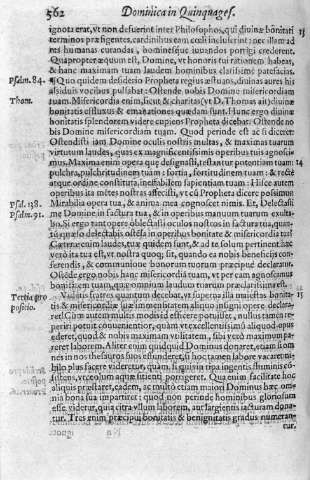 562 Dominica in Quinquages.
ignota erat, vt non defuerint inter Philosophos, qui diuinæ bonitati
terminos præfigentes, cardinibus eam cœli incluserint: nec illam ad
res humanas curandas, hominesque iuuandos porrigi crederent.
Quapropter æquum est, Domine, vt honoris tui rationem habeas,
& hanc maximam tuam laudem hominibus clarissimè patefacias.
Psalm. 84.
¶ Quo quidem desiderio Propheta regius æstuans, diuinas aures his
assiduis vocibus pulsabat: Ostende nobis Domine misericordiam
Thom.
tuam. Misericordia enim, sicut & charitas (vt D. Thomas ait) diuinæ
bonitatis æstiuus & emanationes quædam sunt. Hunc ergo diuinæ
bonitatis splendorem videre cupiens Propheta dicebat: Ostende no
bis Domine misericordiam tuam. Quod perinde est ac si diceret:
Ostendisti iam Domine oculis nostris multas, & maximas tuarum
virtutum laudes, quas ex magnificentissimis operibus tuis agnosci
mus. Maxima enim opera quæ designasti, testantur potentiam tuam:
pulchra, pulchritudinem tuam: fortia, fortitudinem tuam: & recte
atque ordine constituta, ineffabilem sapientiam tuam: Hîcce autem
operibus ita mētes nostras affecisti, vt cū Propheta dicere possimus
Psal. 138.
Mirabilia opera tua, & anima mea cognoscet nimis. Et, Delectasti
Psalm. 91.
me Domine in factura tua, & in operibus manuum tuarum exulta-
bo. Si ergo tant opere oblectasti oculos nostros in factura tua, quan
to quæso delectabis ostēsa in operibus bonitate & misericordia tua?
Cæteræ enim laudes, tuæ quidem sunt, & ad te solum pertinent hæc
verò ita tua est, vt nostra quoq; sit, quando ea nobis beneficiis con-
ferendis, & communione bonorum tuorum præcipuè declaratur.
Ostēde ergo nobis hanc misericordiā tuam, vt per eam agnoscamus
bonitatem tuam, quæ omnium laudum tuarum præclarissima est.
Tertia pro
positio.
Vultis fratres quantum decebat, vt superna illa maiestas bonita-
tis & misericordiæ suæ immensitatem aliquo insigni opere declara
ret? Cùm autem multis modis id efficere potuisset, nullus tamen re-
periri potuit conuenientior, quàm vt excellentissimū aliquod opus
ederet, quod & nobis maximum vtilitatem, sibi verò maximum pa-
reret laborem. Aliter enim quidquid Dominus donaret, etiam si om
nes in nos thesauros suos effunderet, si hoc tamen labore vacaret, ni-
hilo plus facere videretur, quàm
Qua enim facilitate hoc
aliquis præstaret, eadem, ac multò etiam maiori Dominus hæc om-
nia bona sua impartitur: quod non perinde hominibus gloriosum
esse videtur, qui citra vllum laborem, aut largientis iacturam dona-
tur. Tres enim præcipui bonitatis & benignitatis gradus numeran-
tur.